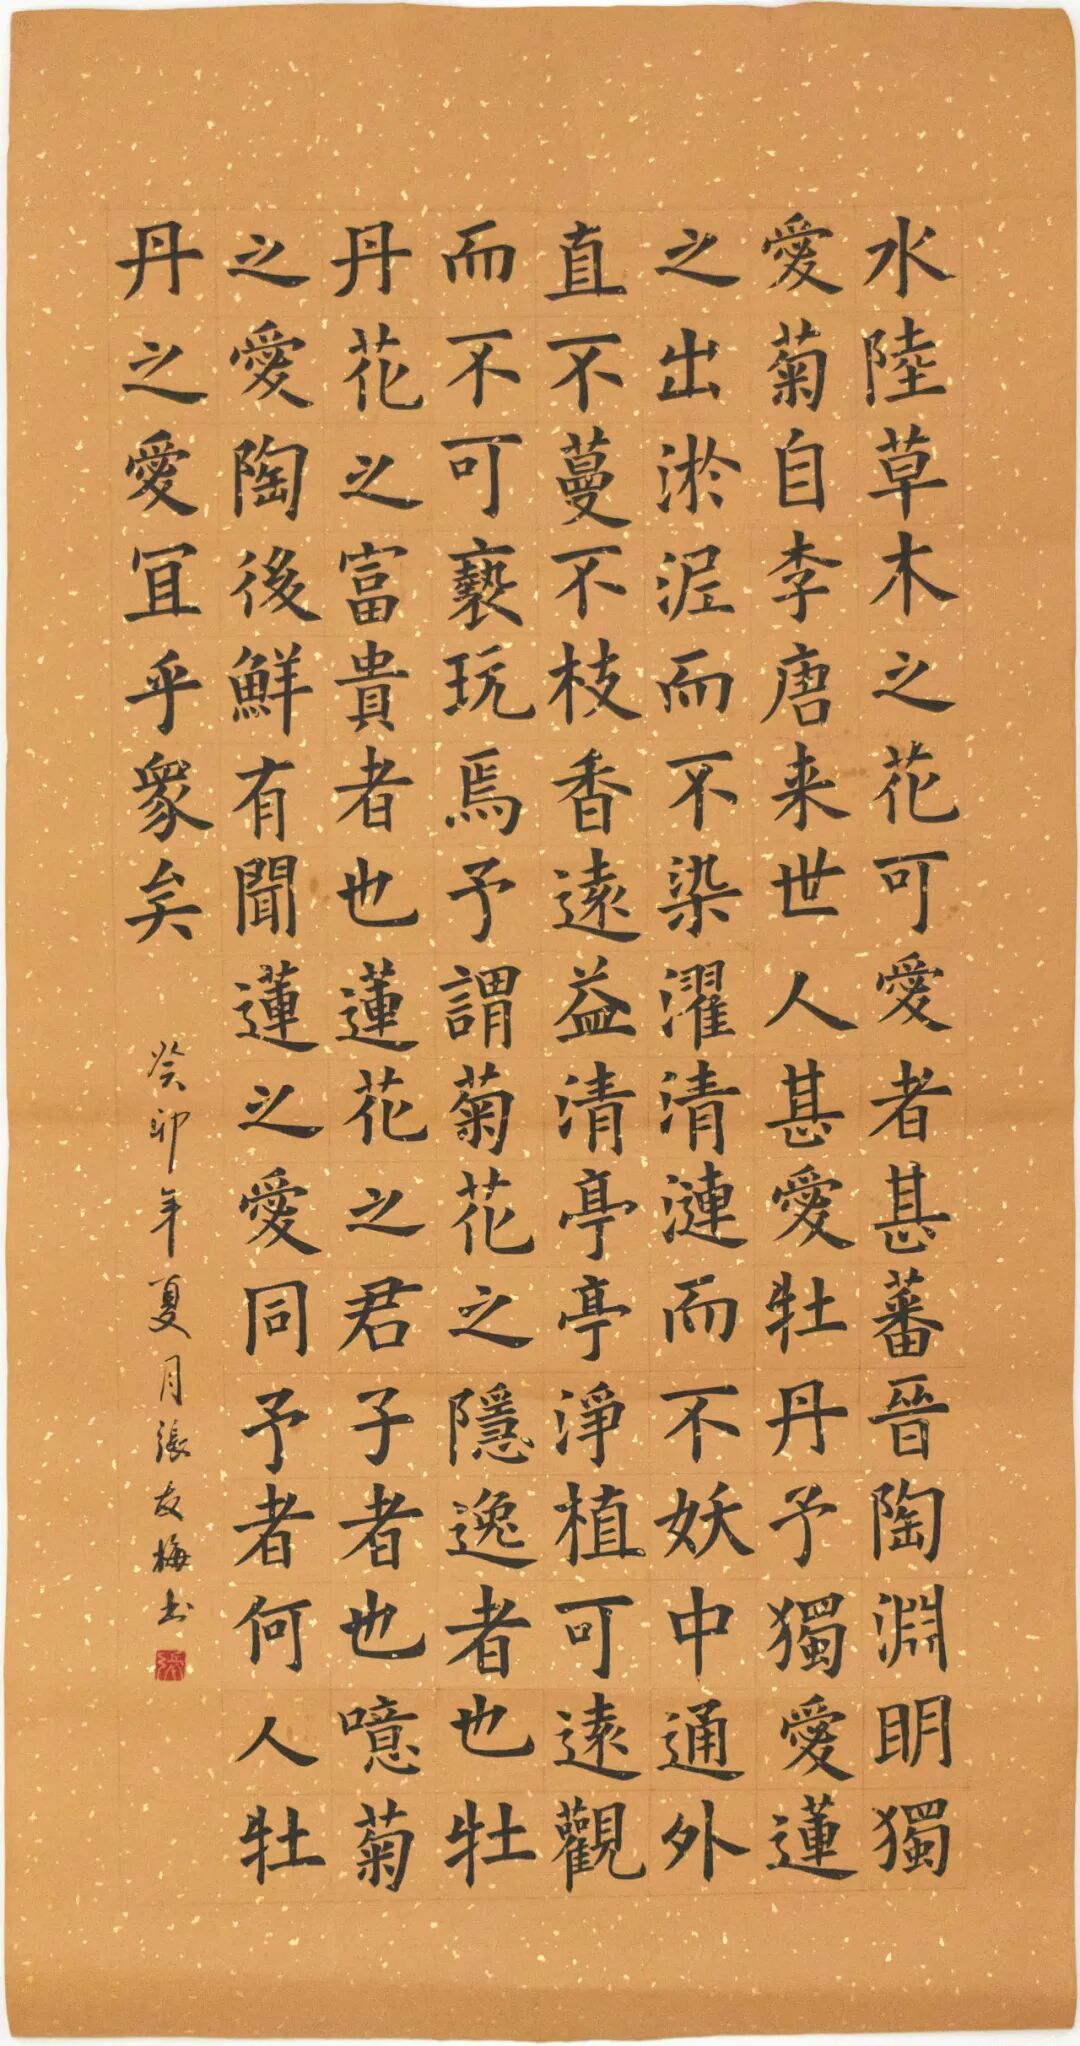 水陸草木之花可愛者甚蕃晉陶淵明獨
愛菊自李唐来世人甚愛牡丹予獨愛蓮
之出淤泥而不染濯清漣而不妖中通外
直不蔓不枝香遠益清亭亭淨植可遠觀
而不可褻玩焉予謂菊花之隱逸者也牡
丹花之富貴者也蓮花之君子者也噫菊
之愛陶後鮮有聞蓮之愛同予者何人牡
丹之愛宜乎衆矣
癸卯年夏月張友梅书
張